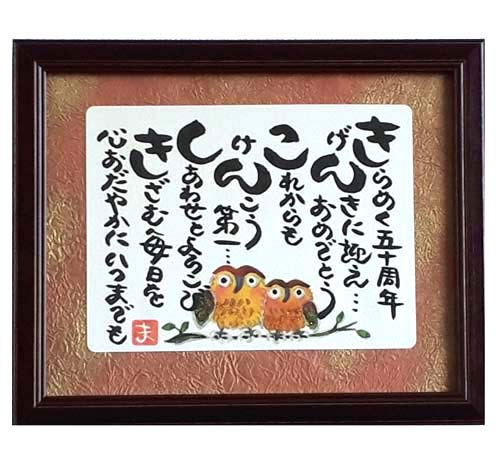 きらめく五十周年
げんきに迎え…
おめでとう
これからも
けんこう
第一…
しあわせとよろこび
きざむ毎日を
心おだやかにいつまでも
ま